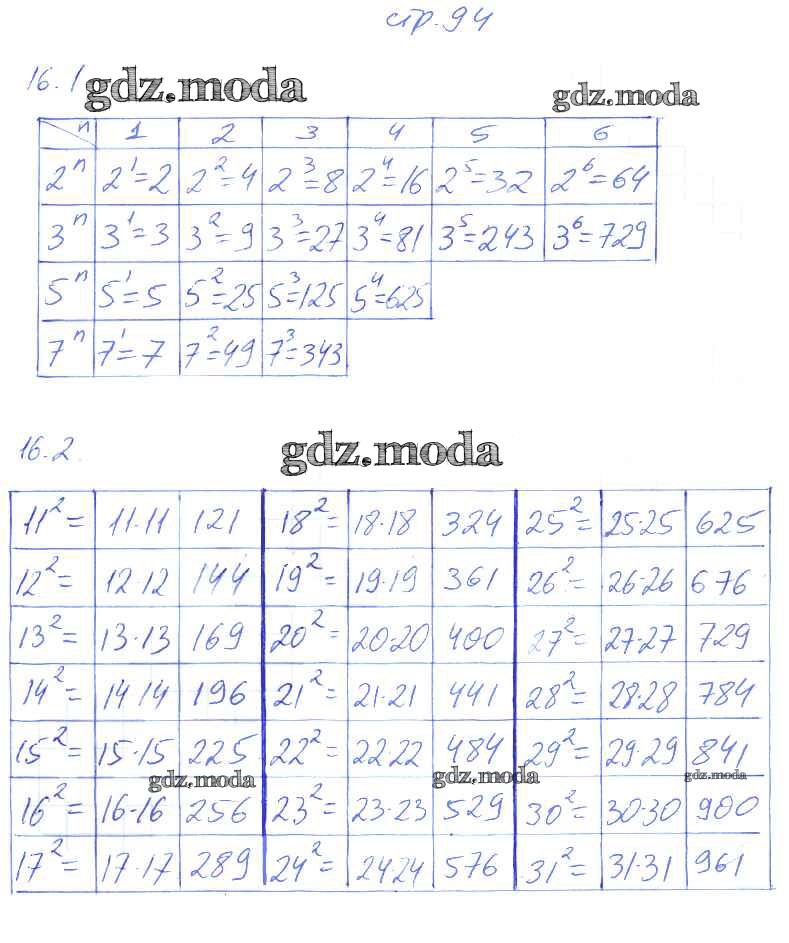 стр. 94
16.1 gdz.moda gdz.moda
n 1 2 3 4 5 6
2ⁿ 2¹=2 2²=4 2³=8 2⁴=16 2⁵=32 2⁶=64
3ⁿ 3¹=3 3²=9 3³=27 3⁴=81 3⁵=243 3⁶=729
5ⁿ 5¹=5 5²=25 5³=125 5⁴=625
7ⁿ 7¹=7 7²=49 7³=343
16.2. gdz.moda
11²= 11·11 121 18²= 18·18 324 25²= 25·25 625
12²= 12 12 144 19²= 19·19 361 26²= 26·26 676
13²= 13·13 169 20²= 20·20 400 27²= 27·27 729
14²= 14 14 196 21²= 21·21 441 28²= 28·28 784
15²= 15·15 225 22²= 22·22 484 29²= 29·29 841
gdz.moda gdz.moda gdz.moda
16²= 16·16 256 23²= 23·23 529 30²= 30·30 900
17²= 17·17 289 24²= 24·24 576 31²= 31·31 961